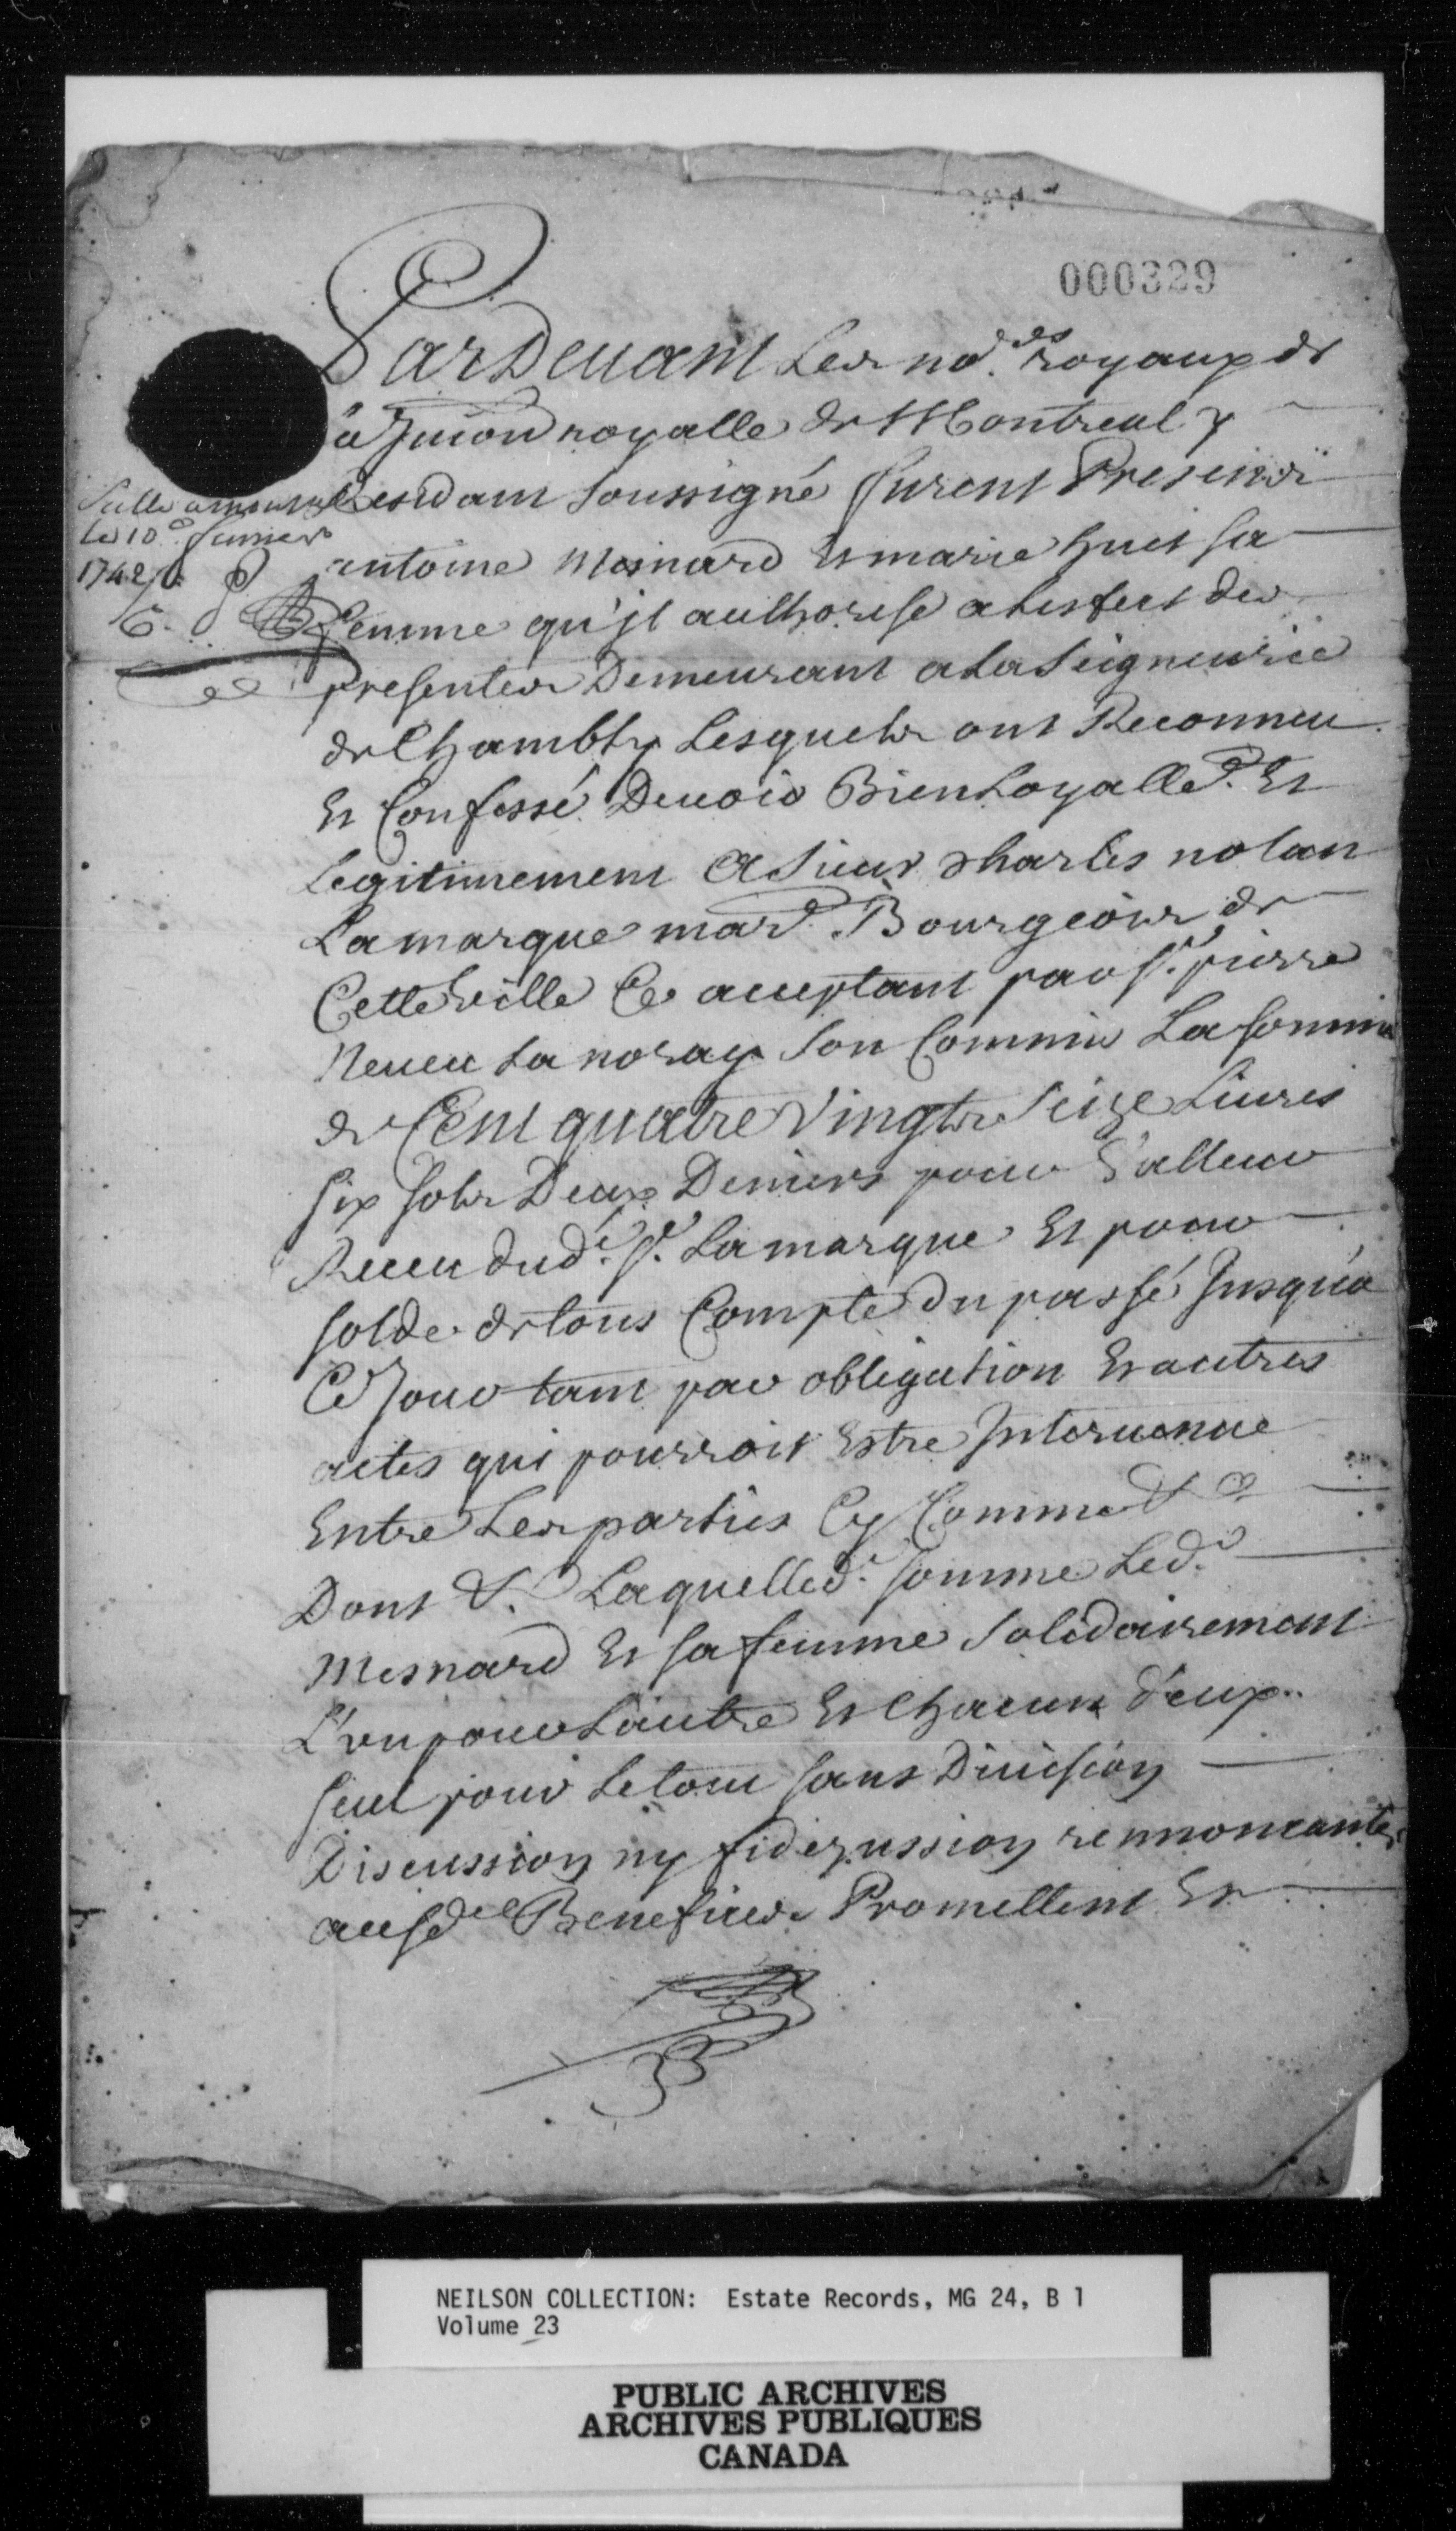 000329
Pardevant Les no.res royaux de
la Jurion royalle de Montreal y
Residant soussigné furent Presents
antoine Mesnard Et marie huet sa
femme qu'jl authorise a Lesfect des
presentes Demeurant a la Seigneurie
de Chambly Lesquels ont Reconneu
Et Confessé Devoir Bien Loyalle.t Et
Legitimement A Sieur Charles nolan
Lamarque mar.d Bourgeois de
Cette ville Ce acceptant par s.r pierre
Neveu La noray son Commis La somme
de Cent quatre Vingts Seize Livres
six sols Deux Deniers pour Valleur
Receu dud.t s.r Lamarque Et pour
solde de tous Compte du passé Jusqu'a
Ce Jour tant par obligation Et autres
actes qui pourroit Estre Intervenue
Entre Les parties Cy Comme
Dont &. Laquelled.t somme Led.t
Mesnard Et sa femme Solidairement
L'un pour Lautre Et Chacun d'eux
seul pour Le tout sans Division
Discussion ny fidejussion rennoncants
ausd. Benefices Promettent Et
le 10.e Janvier
1742
NEILSON COLLECTION: Estate Records, MG 24, B 1
Volume 23
PUBLIC ARCHIVES
ARCHIVES PUBLIQUES
CANADA